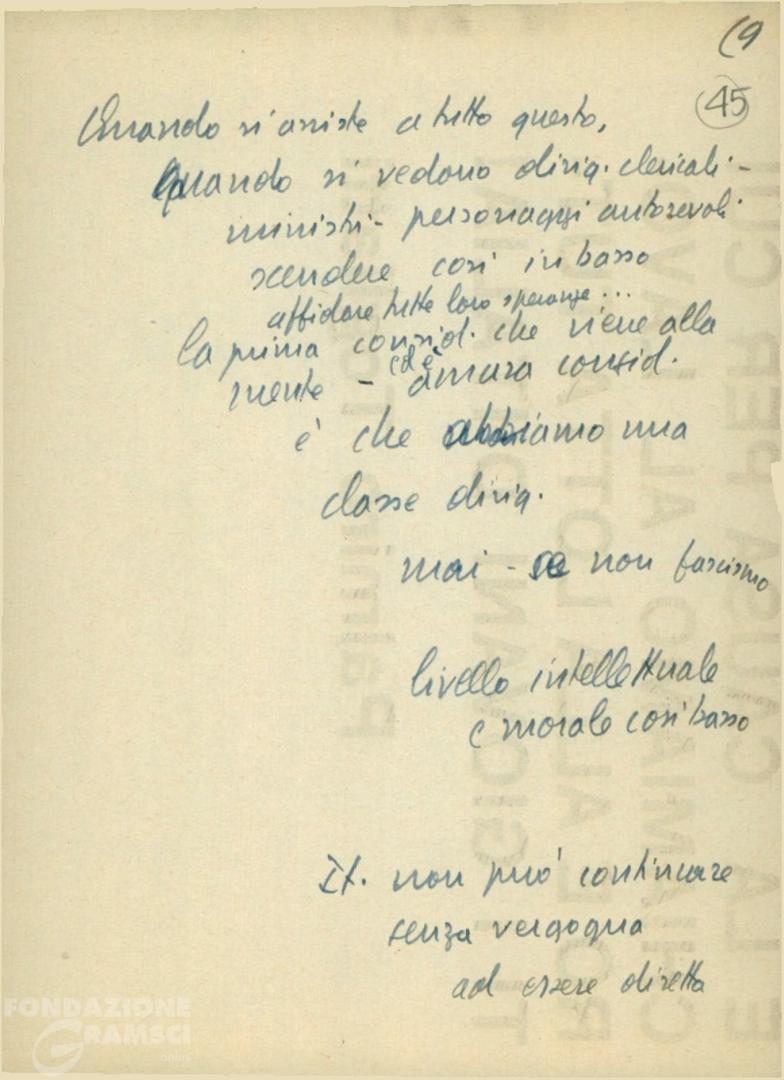 (9
45
Quando si assiste a tutto questo,
Quando si vedono dirig. clericali -
ministri - personaggi autorevoli
scendere così in basso
affidare tutte loro speranze...
la prima consid. che viene alla
mente - ed è amara consid.
è che abbiamo una
classe dirig.
mai - se non fascismo
livello intellettuale
e morale così basso
It. non può continuare
senza vergogna
ad essere diretta
FONDAZIONE
GRAMSCI
onlus